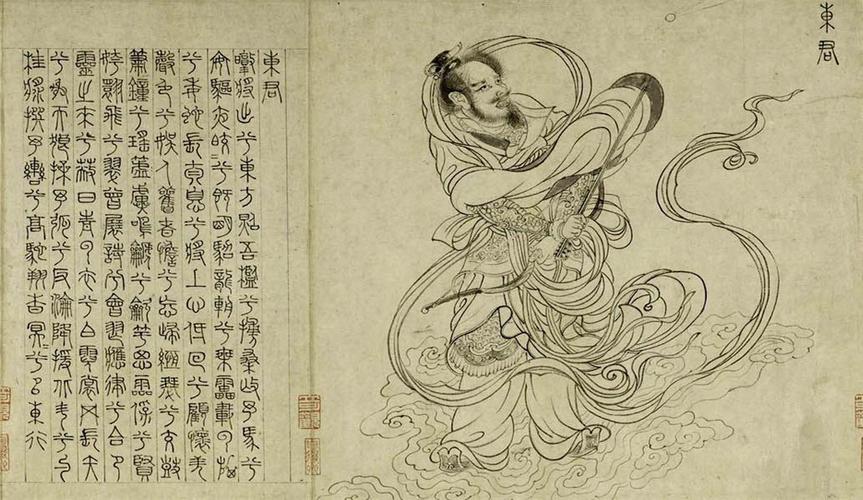 東君
東君
暾將出兮東方照吾檻兮扶桑撫予馬兮
安驅夜皎皎兮既明駕龍輈兮乘靁載雲旗
兮委蛇長太息兮將上心低佪兮顧懷羌
聲色兮娛人觀者憺兮忘歸緪瑟兮交鼓
簫鐘兮瑤簴鳴篪兮龡竽思靈保兮賢
姱翾飛兮翠曾展詩兮會舞應律兮合節
靈之來兮蔽日青雲衣兮白霓裳舉長矢
兮射天狼操予弧兮反淪降援北斗兮酌
桂漿撰予轡兮高駝翔杳冥冥兮以東行